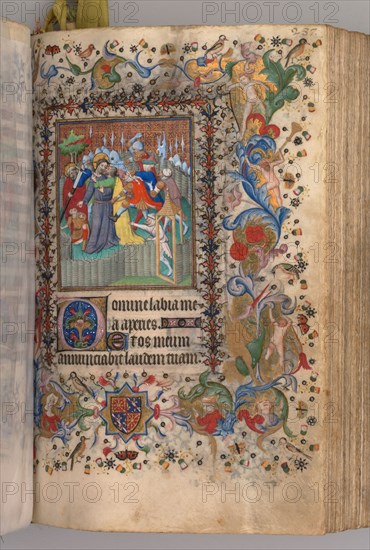 235
Domine labia me
a apries.
Et os meum
annunciabit laudem tuam.
PHOTO 12